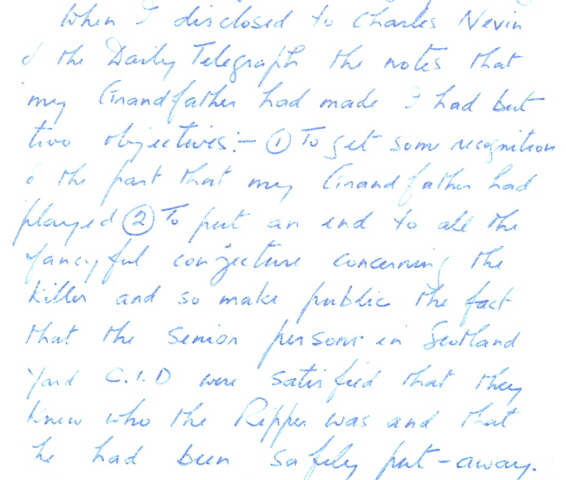 When I disclosed to Charles Nevin
of the Daily Telegraph the notes that
my Grandfather had made I had but
two objectives:- ① To get some recognition
of the part that my Grandfather had
played ② To put an end to all the
fancyful conjecture concerning the
killer and so make public the fact
that the senior persons in Scotland
Yard C.I.D were satisfied that they
knew who the Ripper was and that
he had been safely put-away.